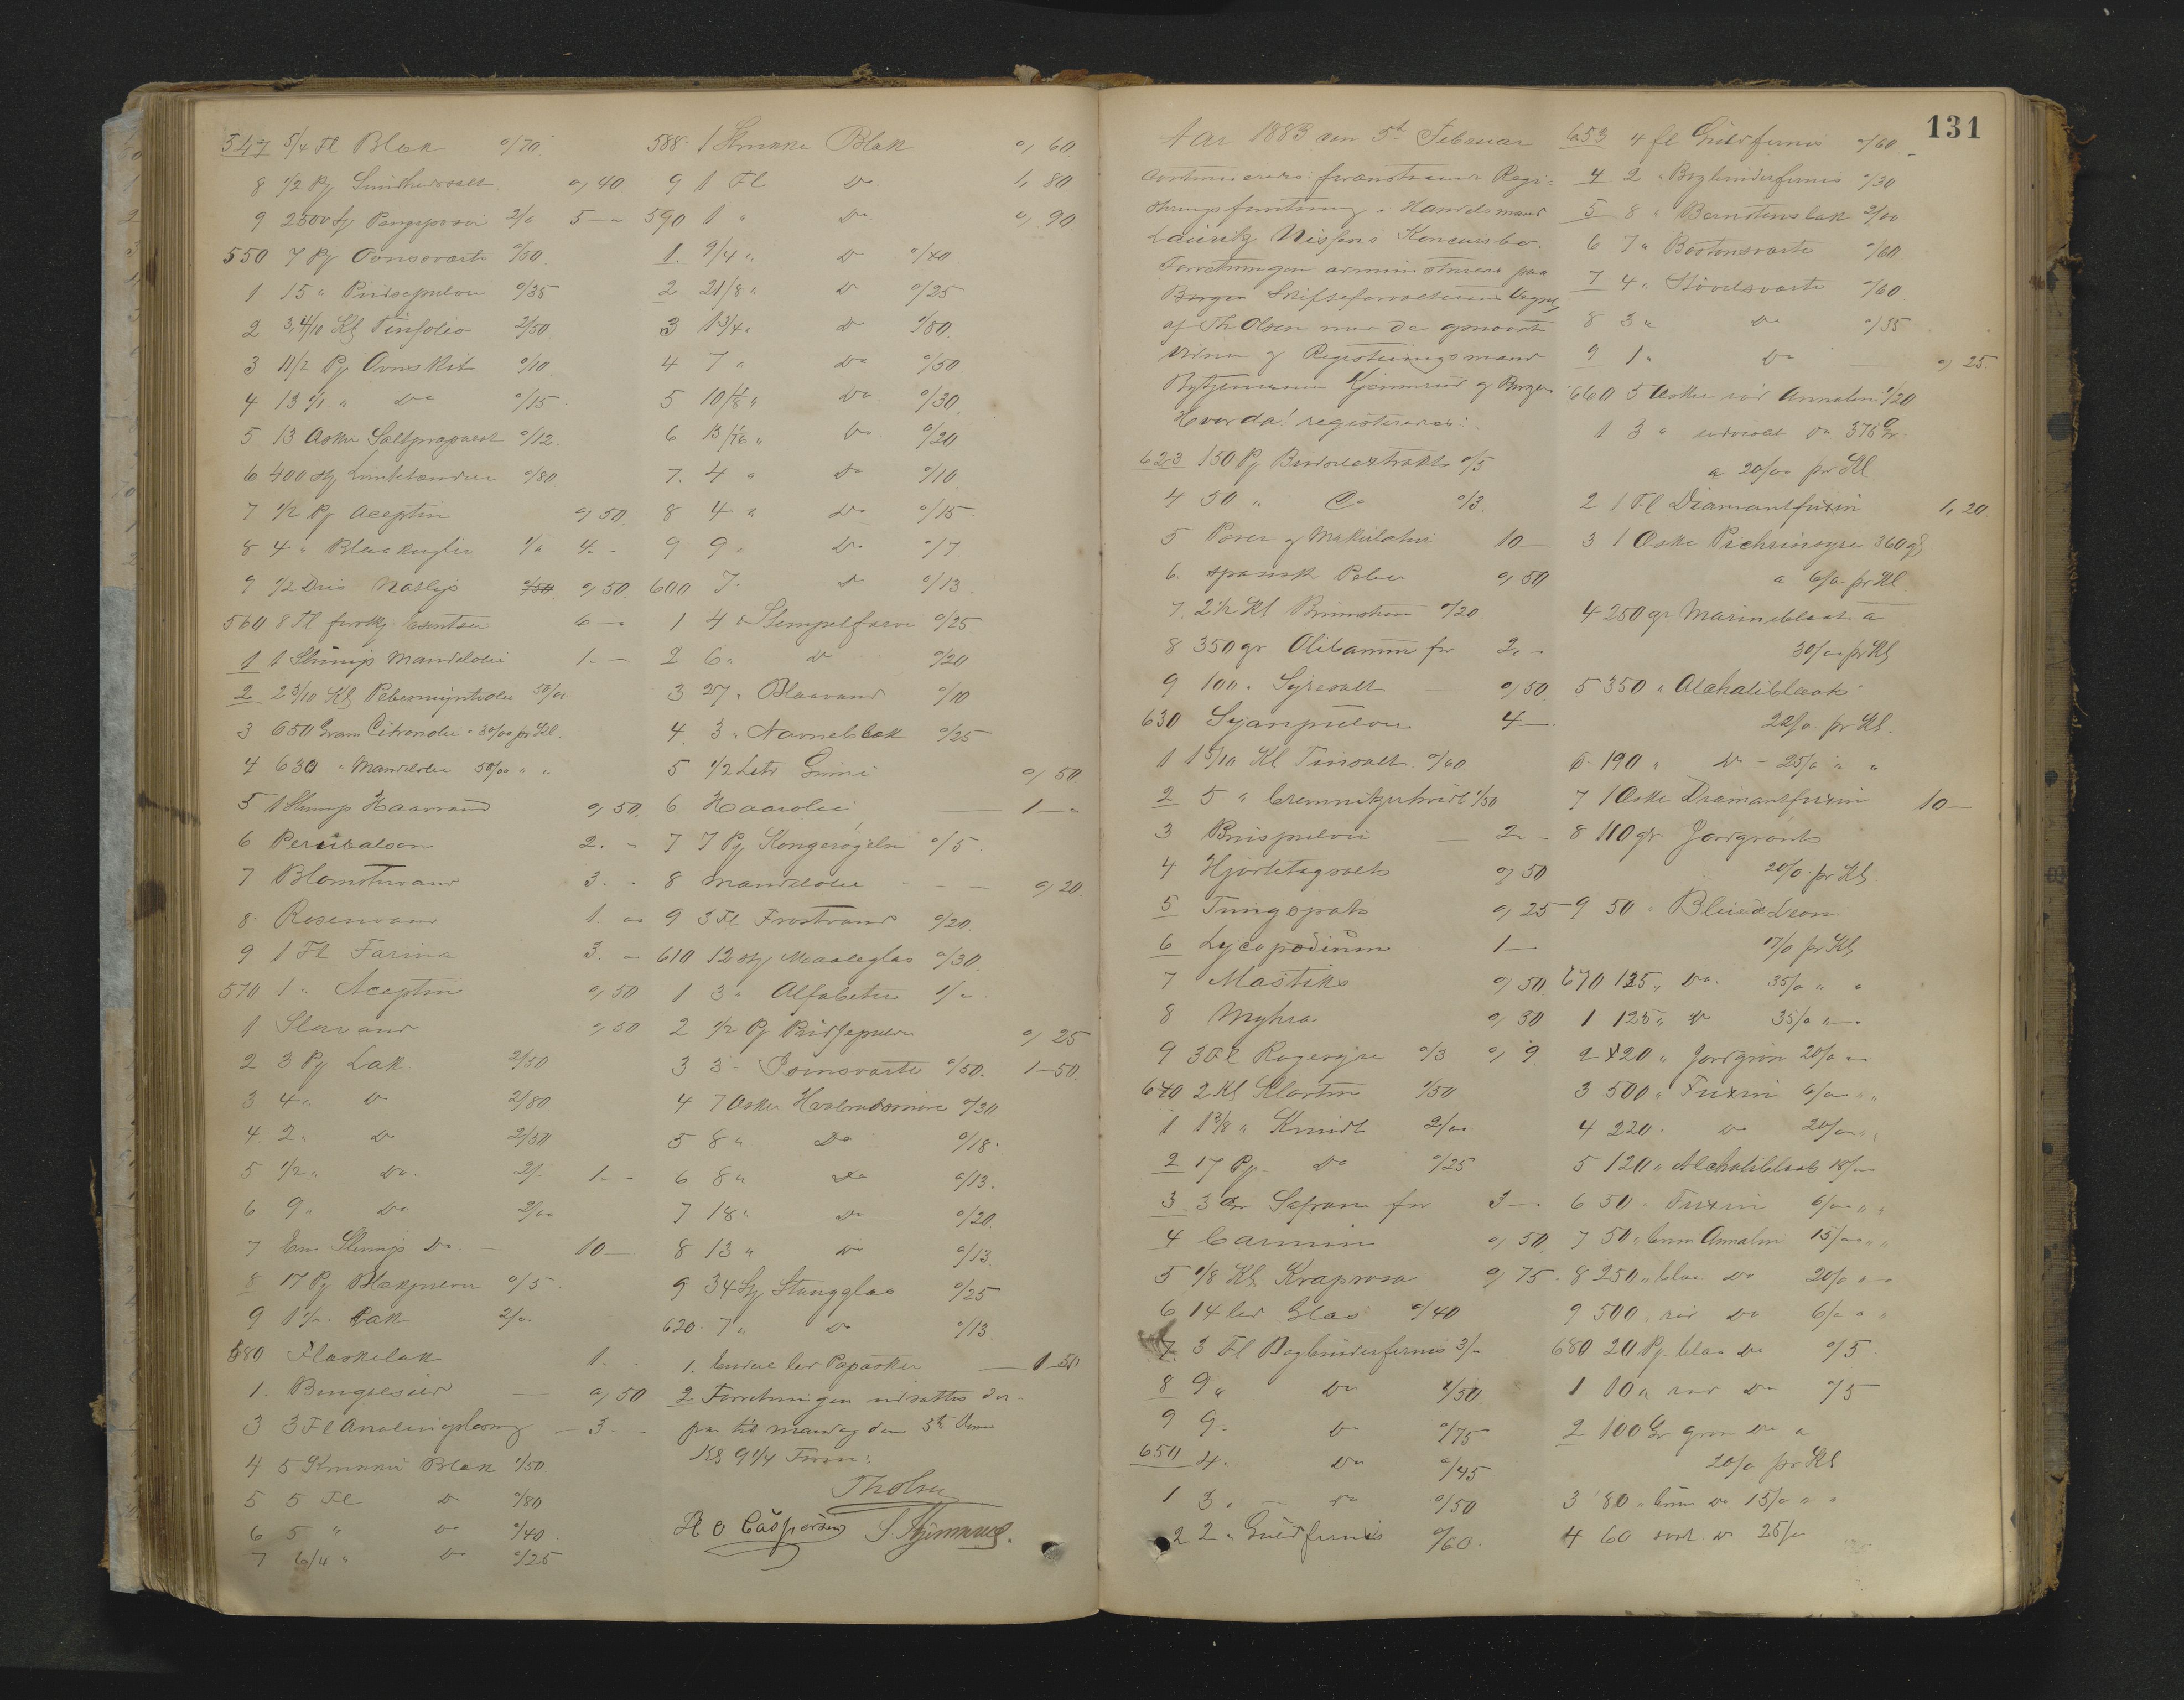 547 5/4 Fl Blæk 0/70
8 1/2 Pg 0, 40
9 2500 Stj 2/0 5 —
550 7 Pg Ovnsværte 0/50
1 15 " Pudsepulver 0/35
2 3,4/10 Kl Tinfolio 2/50
3 11/2 Pg Ovnskit 0/10
4 13 1/1 " Do 0/15
5 13 Æsker Saltpræparat 0/12
6 400 Stj 0/80
7 1/2 Pg Aceptin 0, 50
8 4 " Blaakugler 1/0 4. -
9 1/2 Dus 0, 50
560 8 Fl forskj Esentser 6 —
1 1 Slump Mandelolie 1. —
2 2 3/10 Kl Pebermynteolie 50/00
3 650 Gram Citronolie a 30/00 pr Kl.
4 630 " Mandelolie 50/00 " "
5 1 Slump Haarvand 0, 50
6 Perubalsom 2. -
7 Blomstervand 3. -
8 Rosenvand 1. "
9 1 Fl Farina 3. -
570 1 " Aceptin 0, 50
1 0, 50
2 3 Pg Lak 2/50
3 4 " Do 2/80
4 2 " Do 2/50
5 1/2 " Do 2/- 1 - -
6 9 " Do 2/00
7 En Slump Do — 10 —
8 17 Pg Blækpulver 0/5
9 1 1/2 Lak 2/0
580 Flaskelak 1. -
1. Bengalsild — 0, 50
3 3 Fl — 3 - -
4 5 Krukker Blæk 1/50
5 5 Fl Do 0/80
6 5 " Do 0/40
7 6/4 " Do 0/25
588 1 Krukke Blæk 0, 60
9 1 Fl Do 1, 80
590 1 " Do 0, 90
1. 9/4 " Do 0/40
2 21/8 " Do 0/25
3 13/4 " Do 1/80
4 7 " Do 0/50
5 10/8 " Do 0/30
6 13/16 " Do 0/20
7. 4 " Do 0/10
8 4 " Do 0/15
9 9 " Do 0/7
600 7 " Do 0/13
1 4 " Stempelfarve 0/25
2 6 " Do 0/20
3 27 " Blaavand 0/10
4 3 " Navneblæk 0/25
5 1/2 Letr Gumi 0, 50
6 Haarolie 1 —
7 7 Pg Kongerøgelse 0/5
8 Mandelolie - - — 0, 20
9 3 Fl Frostvand 0/20
610 12 Stj Maaleglas 0/30
1 3 " Alfabeter 1/0
2 1/2 Pg Pudsepulver 0, 25
3 3 " 0/50. 1 - 50
4 7 Æsker 0/30
5 8 " Do 0/18.
6 8 " Do 0/13.
7 18 " Do 0/20.
8 13 " Do 0/13.
9 34 Stj Stangglas 0/25
620. 7 " Do 0/13
1. Endel led Papæsker — 1 - 50
2 Forretningen udsattes der-
paa til Mandag den 5te Dennes
Kl 9 1/4 Form:
Th Olsen
H O Caspersen S. Kjemmerud.
131
Aar 1883 den 5te Februar
Registreringsforretning i Handelsmand
Lauritz Nissens Koncursbo.
Forretningen administreres paa
Skifteforvalterens Vegne
af Th Olsen med de opnævnte
Vidner og Registreringsmænd
Kjemmerud og
Hvorda registreredes:
623 150 Pg 0/5
4 50 " Do 0/3.
5 Poser og Makulatur 10 —
6. spansk Peber 0, 50
7. 2 1/2 Kl Brunsten 0/20
8 350 gr Olibamum for 2. -
9 100 " Syresalt — 0, 50
630 Syanpulver 4 —
1 1 5/10 Kl Tinsalt 0/60
2 5 " Cremnitzerhvidt 1/50
3 — 2 -
4 Hjortetagsalt 0, 50
5 Tungspat 0, 25
6 Lycopodium 1 —
7 Mastiks 0, 50
8 Myhra 0, 30
9 3 Fl Røgesyre 0/3 0, 9
640 2 Kl 1/50
1 1 3/8 " 2/00
2 17 Pg Do 0/25
3. 3 gr Safran for 3 —
4 Carmin 0, 50
5 1/8 Kl Kraprosa 0, 75.
6 14 led Glas 0/40
7. 3 Fl Bogbinderfernis 3/-
8 9 " Do 1/50
9 9 " Do 0/75
650 4. Do 0/45
1 3. — Do 0/50
2 2 " Guldfernis 0/60.
653 4 fl Guldfernis 0/60
4 2 " Bogbinderfernis 0/30
5 8 " Bernstenslak 2/00
6 7 " 0/60
7 4 " Støvelsværte 0/60
8 3 " Do 0/35
9 1 " Do — 0, 25.
660 5 Æsker rød Annalin 1/20
1 3 " Do 375 Gr
a 20/00 pr Kl
2 1 Fl Diamantfuxin 1, 20
3 1 Æske Pichrinsyre 360 gr
a 6/0 pr Kl
4 250 gr Marineblaat a
30/00 pr Kl
5 350 " Alchaliblaat
22/0. pr Kl.
6 190 " Do - 25/0 " "
7 1 Æske Diamantfuxin 10 —
8 110 gr Jodgrønt
20/0 pr Kl
9 50 "
17/0 pr Kl
670 125 " Do. 35/0 " "
1 125 " Do 35/0 " -
2 420 " Jodgrøn 20/0 "
3 500 " Fuxin 6/00 " "
4 220. Do 20/00 " "
5 120 " Alchaliblaat 18/00
6 50. Fuxin 6/00 " "
7 50 " brun Annalin 15/00 " "
8 250 " blaa Do 20/0 " "
9 500 " rød Do 6/00 " "
680 20 Pg blaa Do 0/5
1 10 " rød Do 0/5
2 100 Gr grøn Do a
20/0 pr Kl
3 80 " brun Do 15/0 " "
4 60 sort Do 25/00